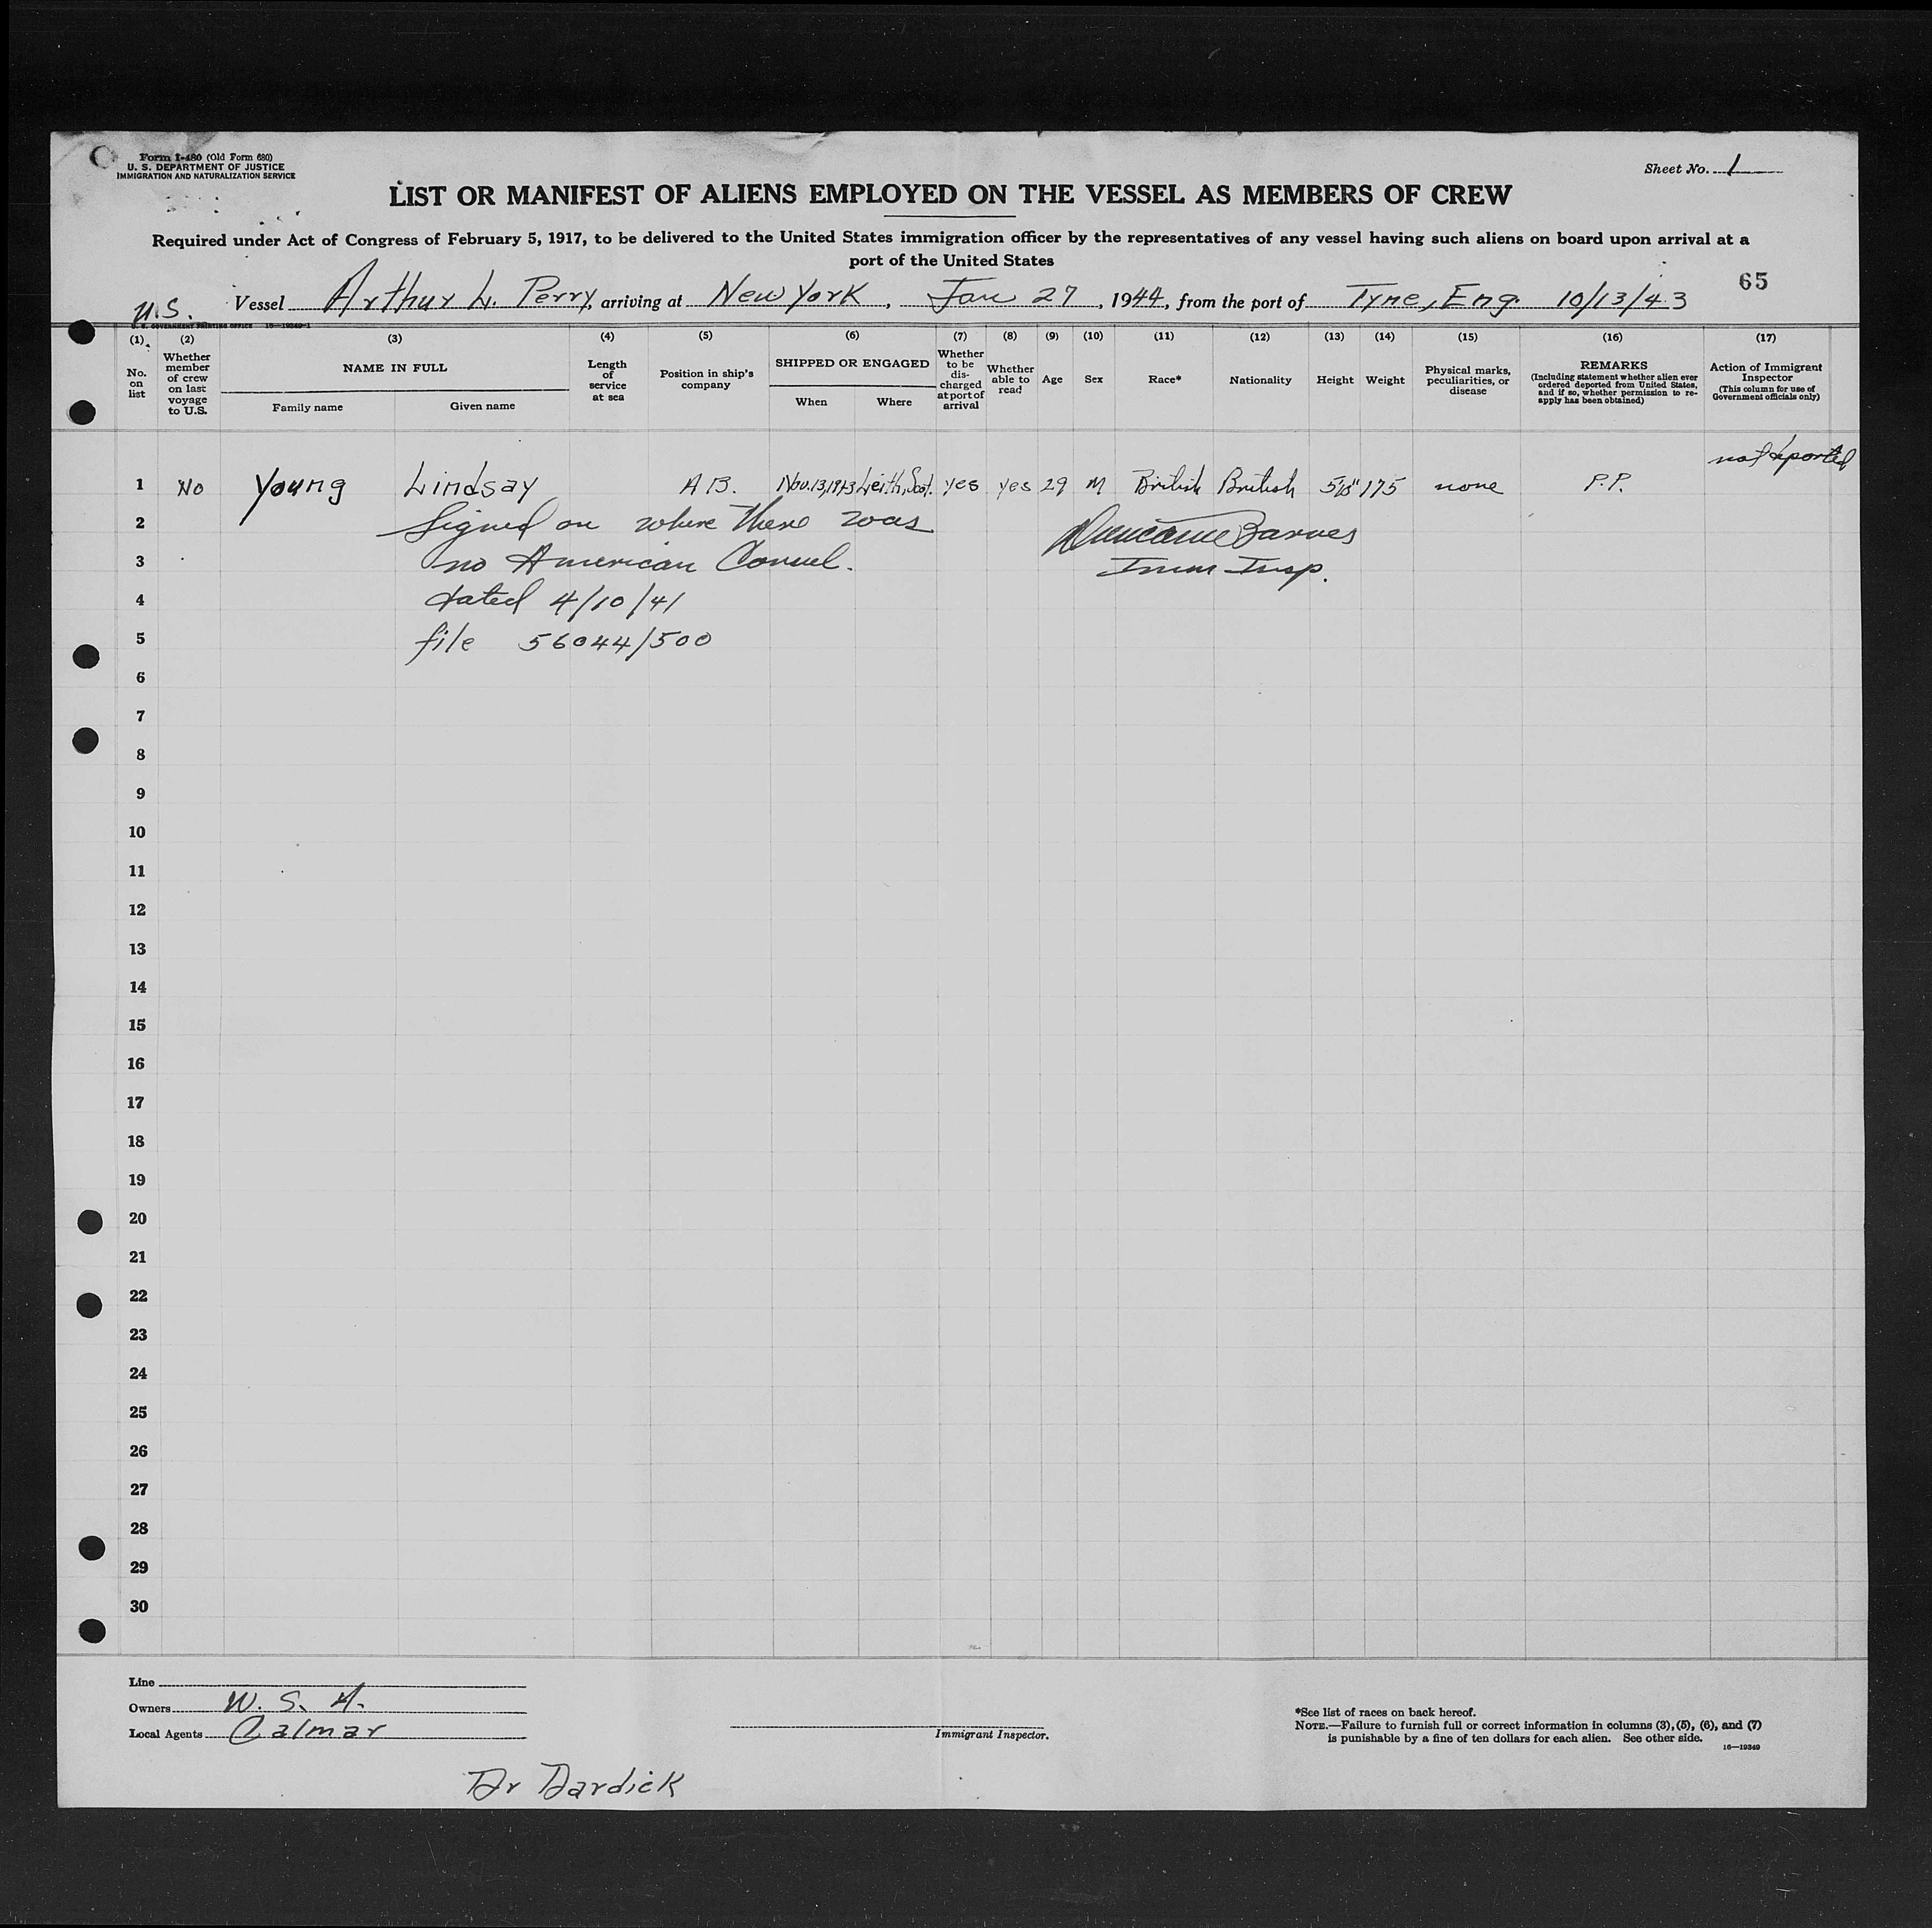 Form I-480 (Old Form 680)
U. S. DEPARTMENT OF JUSTICE
IMMIGRATION AND NATURALIZATION SERVICE
Sheet No. 1
LIST OR MANIFEST OF ALIENS EMPLOYED ON THE VESSEL AS MEMBERS OF CREW
Required under Act of Congress of February 5, 1917, to be delivered to the United States immigration officer by the representatives of any vessel having such aliens on board upon arrival at a
port of the United States
65
U.S. Vessel Arthur L. Perry, arriving at New York, Jan 27, 1944, from the port of Tyne, Eng. 10/13/43
U. S. GOVERNMENT PRINTING OFFICE 16—19349-1
(1) (2) (3) (4) (5) (6) (7) (8) (9) (10) (11) (12) (13) (14) (15) (16) (17)
No. on list
Whether member of crew on last voyage to U.S.
NAME IN FULL
Family name
Given name
Length of service at sea
Position in ship's company
SHIPPED OR ENGAGED
When
Where
Whether to be discharged at port of arrival
Whether able to read
Age
Sex
Race*
Nationality
Height
Weight
Physical marks, peculiarities, or disease
REMARKS
(Including statement whether alien ever ordered deported from United States, and if so, whether permission to reapply has been obtained)
Action of Immigrant Inspector
(This column for use of Government officials only)
not deported
1 No Young Lindsay A B. Nov. 13, 1943 Leith, Scot. yes yes 29 M British British 5'8" 175 none P.P.
2 Signed on where there was Barnes
3 no American Consul. Imm Insp.
4 dated 4/10/41
5 file 56044/500
6
7
8
9
10
11
12
13
14
15
16
17
18
19
20
21
22
23
24
25
26
27
28
29
30
Line
Owners W. S. A.
Local Agents Calmar
Immigrant Inspector.
*See list of races on back hereof.
NOTE.—Failure to furnish full or correct information in columns (3), (5), (6), and (7)
is punishable by a fine of ten dollars for each alien. See other side.
16—19349
Dr Dardick